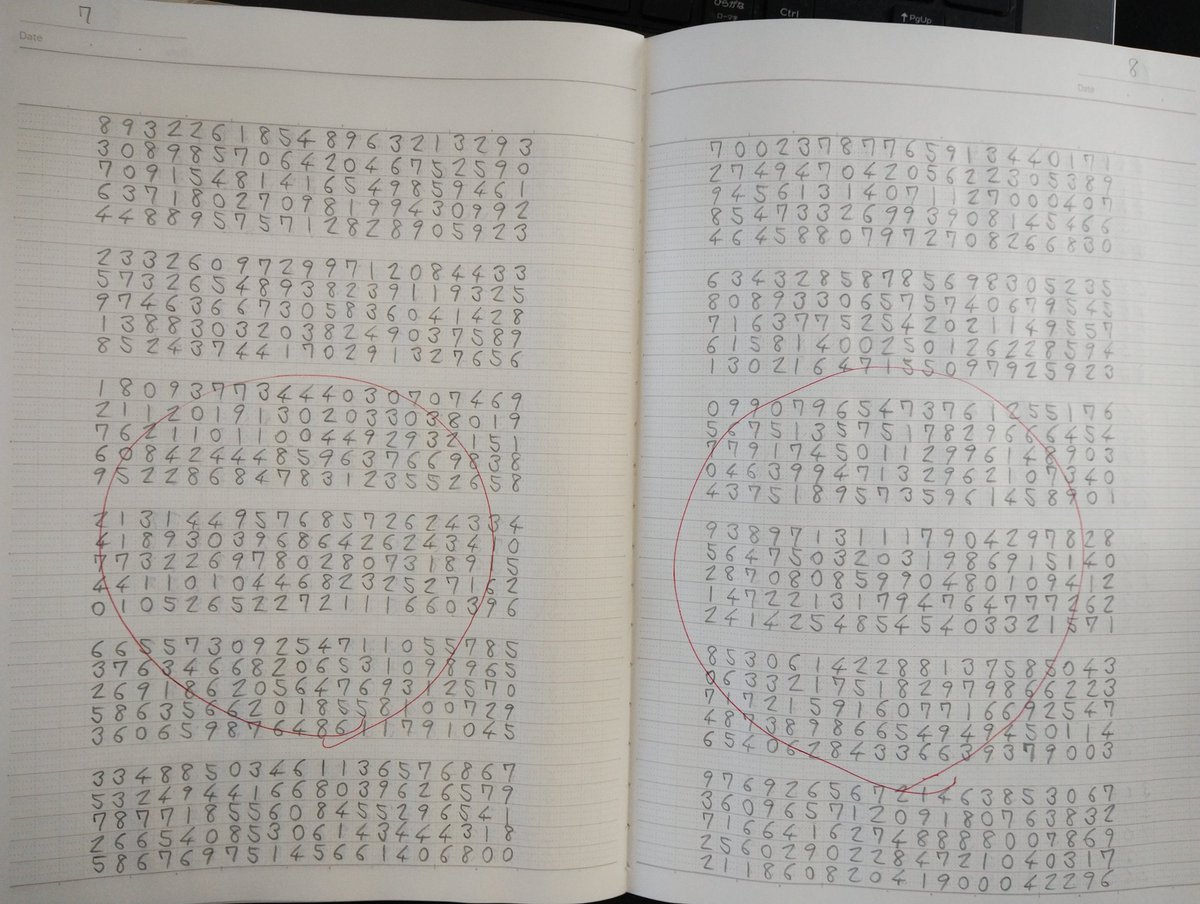 ひらがな
Ctrl
↑PgUp
7
Date
8 9 3 2 2 6 1 8 5 4 8 9 6 3 2 1 3 2 9 3
3 0 8 9 8 5 7 0 6 4 2 0 4 6 7 5 2 5 9 0
7 0 9 1 5 4 8 1 4 1 6 5 4 9 8 5 9 4 6 1
6 3 7 1 8 0 2 7 0 9 8 1 9 9 4 3 0 9 9 2
4 4 8 8 9 5 7 5 7 1 2 8 2 8 9 0 5 9 2 3
2 3 3 2 6 0 9 7 2 9 9 7 1 2 0 8 4 4 3 3
5 7 3 2 6 5 4 8 9 3 8 2 3 9 1 1 9 3 2 5
9 7 4 6 3 6 6 7 3 0 5 8 3 6 0 4 1 4 2 8
1 3 8 8 3 0 3 2 0 3 8 2 4 9 0 3 7 5 8 9
8 5 2 4 3 7 4 4 1 7 0 2 9 1 3 2 7 6 5 6
1 8 0 9 3 7 7 3 4 4 4 0 3 0 7 0 7 4 6 9
2 1 1 2 0 1 9 1 3 0 2 0 3 3 0 3 8 0 1 9
7 6 2 1 1 0 1 1 0 0 4 4 9 2 9 3 2 1 5 1
6 0 8 4 2 4 4 4 8 5 9 6 3 7 6 6 9 8 3 8
9 5 2 2 8 6 8 4 7 8 3 1 2 3 5 5 2 6 5 8
2 1 3 1 4 4 9 5 7 6 8 5 7 2 6 2 4 3 3 4
4 1 8 9 3 0 3 9 6 8 6 4 2 6 2 4 3 4 1 0
7 7 3 2 2 6 9 7 8 0 2 8 0 7 3 1 8 9 1 5
4 4 1 1 0 1 0 4 4 6 8 2 3 2 5 2 7 1 6 2
0 1 0 5 2 6 5 2 2 7 2 1 1 1 6 6 0 3 9 6
6 6 5 5 7 3 0 9 2 5 4 7 1 1 0 5 5 7 8 5
3 7 6 3 4 6 6 8 2 0 6 5 3 1 0 9 8 9 6 5
2 6 9 1 8 6 2 0 5 6 4 7 6 9 3 1 2 5 7 0
5 8 6 3 5 6 6 2 0 1 8 5 5 8 1 0 0 7 2 9
3 6 0 6 5 9 8 7 6 4 8 6 1 1 7 9 1 0 4 5
3 3 4 8 8 5 0 3 4 6 1 1 3 6 5 7 6 8 6 7
5 3 2 4 9 4 4 1 6 6 8 0 3 9 6 2 6 5 7 9
7 8 7 7 1 8 5 5 6 0 8 4 5 5 2 9 6 5 4 1
2 6 6 5 4 0 8 5 3 0 6 1 4 3 4 4 4 3 1 8
5 8 6 7 6 9 7 5 1 4 5 6 6 1 4 0 6 8 0 0
8
Date
7 0 0 2 3 7 8 7 7 6 5 9 1 3 4 4 0 1 7 1
2 7 4 9 4 7 0 4 2 0 5 6 2 2 3 0 5 3 8 9
9 4 5 6 1 3 1 4 0 7 1 1 2 7 0 0 0 4 0 7
8 5 4 7 3 3 2 6 9 9 3 9 0 8 1 4 5 4 6 6
4 6 4 5 8 8 0 7 9 7 2 7 0 8 2 6 6 8 3 0
6 3 4 3 2 8 5 8 7 8 5 6 9 8 3 0 5 2 3 5
8 0 8 9 3 3 0 6 5 7 5 7 4 0 6 7 9 5 4 5
7 1 6 3 7 7 5 2 5 4 2 0 2 1 1 4 9 5 5 7
6 1 5 8 1 4 0 0 2 5 0 1 2 6 2 2 8 5 9 4
1 3 0 2 1 6 4 7 1 5 5 0 9 7 9 2 5 9 2 3
0 9 9 0 7 9 6 5 4 7 3 7 6 1 2 5 5 1 7 6
5 6 7 5 1 3 5 7 5 1 7 8 2 9 6 6 6 4 5 4
7 7 9 1 7 4 5 0 1 1 2 9 9 6 1 4 8 9 0 3
0 4 6 3 9 9 4 7 1 3 2 9 6 2 1 0 7 3 4 0
4 3 7 5 1 8 9 5 7 3 5 9 6 1 4 5 8 9 0 1
9 3 8 9 7 1 3 1 1 1 7 9 0 4 2 9 7 8 2 8
5 6 4 7 5 0 3 2 0 3 1 9 8 6 9 1 5 1 4 0
2 8 7 0 8 0 8 5 9 9 0 4 8 0 1 0 9 4 1 2
1 4 7 2 2 1 3 1 7 9 4 7 6 4 7 7 7 2 6 2
2 4 1 4 2 5 4 8 5 4 5 4 0 3 3 2 1 5 7 1
8 5 3 0 6 1 4 2 2 8 8 1 3 7 5 8 5 0 4 3
0 6 3 3 2 1 7 5 1 8 2 9 7 9 8 6 6 2 2 3
7 1 7 2 1 5 9 1 6 0 7 7 1 6 6 9 2 5 4 7
4 8 7 3 8 9 8 6 6 5 4 9 4 9 4 5 0 1 1 4
6 5 4 0 6 2 8 4 3 3 6 6 3 9 3 7 9 0 0 3
9 7 6 9 2 6 5 6 7 2 1 4 6 3 8 5 3 0 6 7
3 6 0 9 6 5 7 1 2 0 9 1 8 0 7 6 3 8 3 2
7 1 6 6 4 1 6 2 7 4 8 8 8 8 0 0 7 8 6 9
2 5 6 0 2 9 0 2 2 8 4 7 2 1 0 4 0 3 1 7
2 1 1 8 6 0 8 2 0 4 1 9 0 0 0 4 2 2 9 6